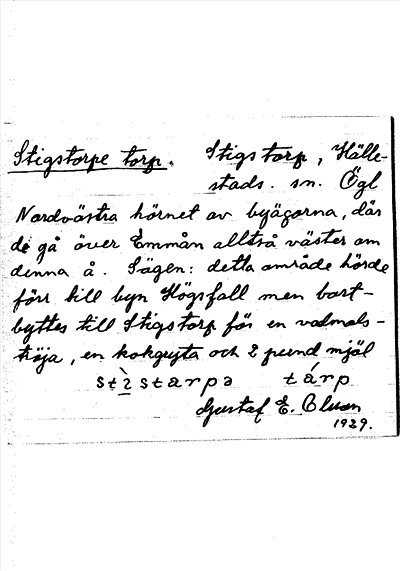 Stigstorpe torp. Stigstorp, Hälle-
stads. sn. Ögl
Nordvästra hörnet av byägorna, där
de gå över Emmån alltså väster om
denna å. Sägen: detta område hörde
förr till byn Högsfall men bort-
byttes till Stigstorp för en vadmals-
tröja, en kokgryta och 2 pund mjöl
stìstarpə tárp
Gustaf E. Olsson
1929.